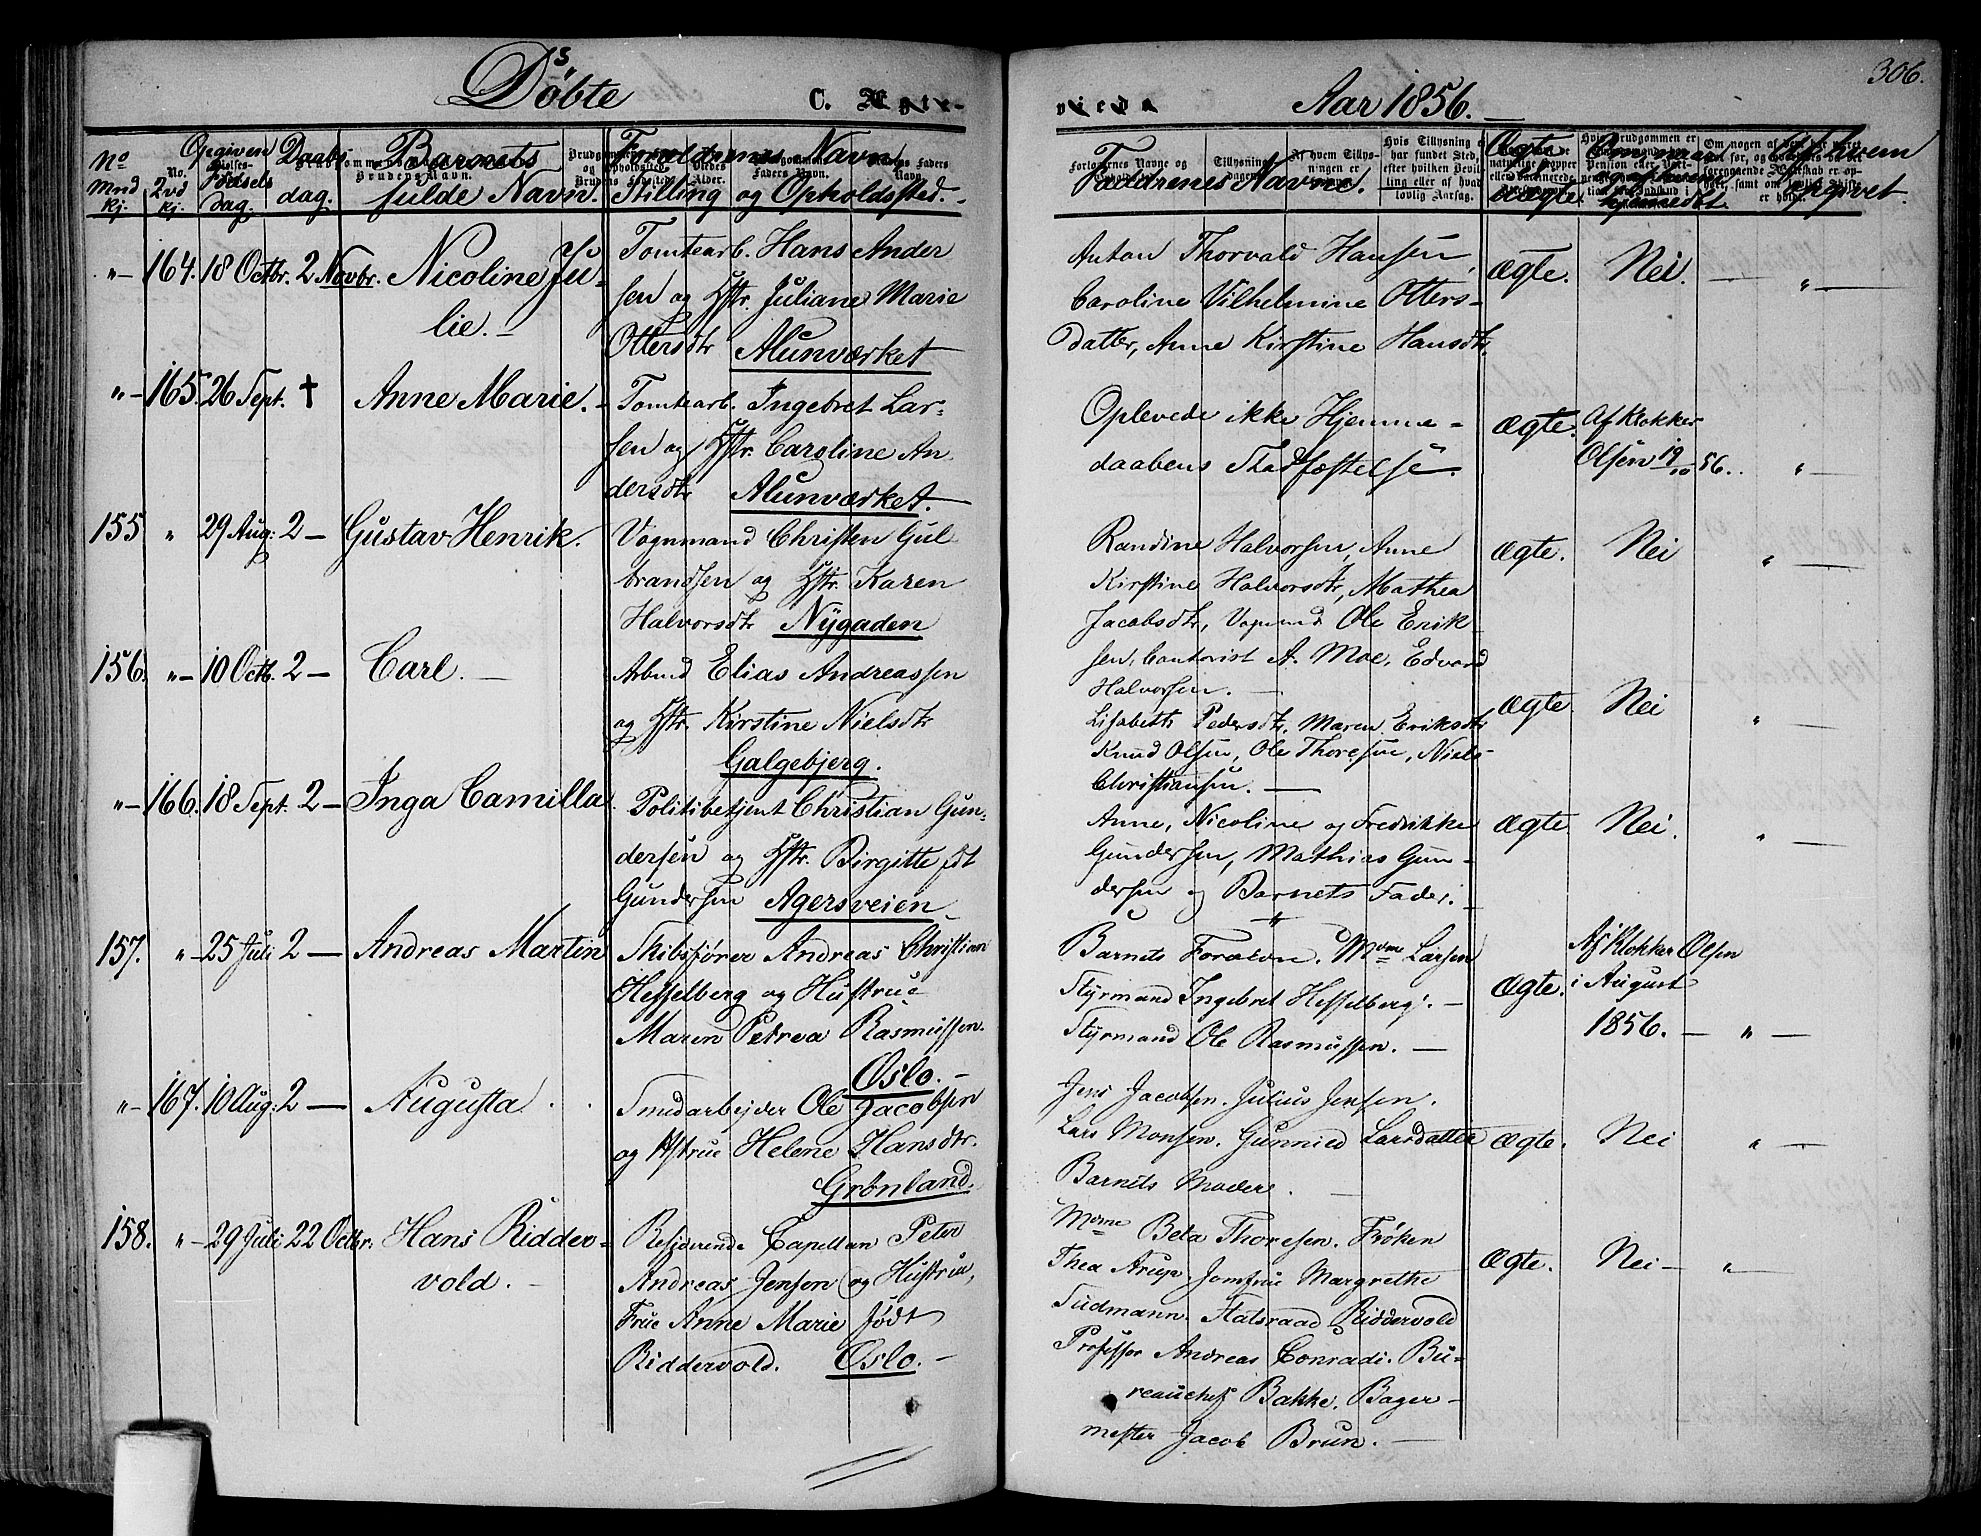 Døbte C. Ægte-
viede Aar 1856. —
306.
No Mnd kj. No. Qvd kj. Opgiven Fødselsdag. Daabsdag. Barnets fulde Navn. Forældrenes Navn, Stilling og Opholdssted. Faddrenes Navne. Ægte uægte.
"- 164. 18 Octbr. 2 Novbr. Nicoline Ju-
lie. -
Tomtearb. Hans Ander
sen og Hstr. Juliane Marie
Ottersdtr Alunværket
Anton Thorvald Hansen,
Caroline Vilhelmine Otters-
datter, Anne Kirstine Hansdtr.
ægte. Nei. — " —
"- 165. 26 Sept. † Anne Marie. -
Tomtearb. Ingebret Lar-
sen og Hstr. Caroline An
dersdtr Alunværket.
Oplevede ikke Hjemme-
daabens Stadfæstelse.
ægte. Af Klokker
Olsen 19/10 56. " —
155 " 29 Aug: 2 — Gustav Henrik.
Vognmand Christen Gul
brandsen og Hstr. Karen
Halvorsdtr Nygaden
Randine Halvorsen, Anne
Kirstine Halvorsdtr, Mathea
Jacobsdtr, Vognmd Ole Erik-
sen, A. Moe, Edvard
Halvorsen. —
ægte. Nei " —
156. "- 10 Octb. 2 — Carl. —
Arbmd Elias Andreassen
og Hstr. Kirstine Nielsdtr
Galgebjerg.
Lisabeth Pedersdtr, Maren Eriksdtr
Knud Olsen, Ole Thoresen, Niels
Christiansen. —
ægte. Nei " —
"- 166. 18 Sept. 2 — Inga Camilla
Politibetjent Christian Gun-
dersen og Hstr. Birgitte fdt
Gundersen Agersveien
Anne, Nicoline og Fredrikke
Gundersen, Mathias Gun-
dersen og Barnets Fader. -
ægte Nei. " —
157. "- 25 Juli 2 — Andreas Martin
Skibsfører Andreas Christian
Hesselberg og Hustrue
Maren Petrea Rasmussen.
Oslo. —
Barnets Forældre. Mme Larsen
Styrmand Ingebret Hesselberg. —
Styrmand Ole Rasmussen. —
ægte. Af Klokker Olsen
i August
1856. — " —
"- 167. 10 Aug: 2 — Augusta
Smedarbejder Ole Jacobsen
og Hstrue Helene Hansdtr.
Grønland.
Jens Jacobsen. Julius Jensen.
Lars Monsen. Gunnied Larsdatter
Barnets Moder. —
ægte. Nei " —
158. "- 29 Juli 22 Octbr: Hans Ridder-
vold. —
Residerende Capellan Peter
Andreas Jensen og Hustrue,
Frue Anne Marie født
Riddervold. Oslo. —
Mme Beta Thoresen. Frøken
Thea Arup. Jomfrue Margrethe
Tudmann. Statsraad Riddervold
Professor Andreas Conradi. Bu-
reauchef Bakke. Bager-
mester Jacob Brun. —
Ægte. Nei — " —